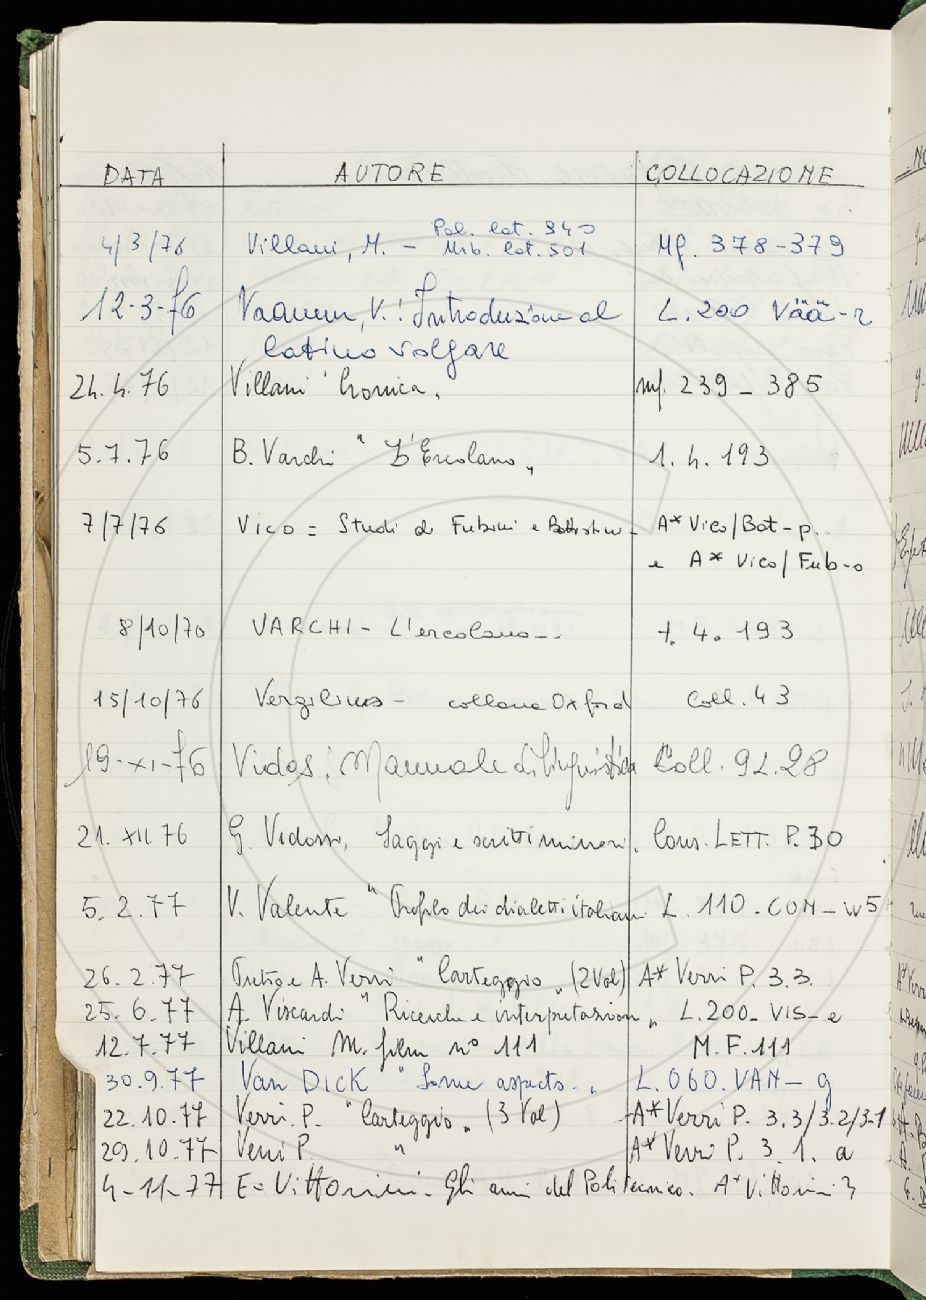 DATA AUTORE COLLOCAZIONE
4/3/76 Villani, M. - Pal. lat. 940 Mf. 378-379
Urb. lat. 501
12-3-76 Vaanen, V.: Introduzione al L.200 Vää-2
latino volgare
24.4.76 Villani "Cronica" mf. 239-385
5.7.76 B. Varchi "L'Ercolano" 1.4.193
7/7/76 Vico = Studi di Fubini e A* Vico/Bat-p..
e A* Vico/Fub-o
8/10/70 VARCHI - L'ercolano-- 1.4.193
15/10/76 Vergilius - collana Oxford Coll.43
19-XI-76 Vidos: Manuale di linguistica Coll. 92.28
21. XII.76 G. Vidossi, Saggi e scritti minori. Cons. LETT. P.30
5.2.77 V. Valente "Profilo dei dialetti italiani L.110.CON-w5
26.2.77 Pietro e A. Verri "Carteggio" (2Vol) A* Verri P. 3.3.
25.6.77 A. Viscardi "Ricerche e interpretazioni" L.200- VIS-e
12.7.77 Villani M. film n° 111 M.F.111
30.9.77 Van DICK "Some aspects." L.060.VAN-g
22.10.77 Verri. P. "Carteggio" (3 Vol) A* Verri P. 3.3/3.2/3.1
29.10.77 Verri P. " A* Verri P. 3.1. a
4-11-77 E. Vittorini. Gli anni del Politecnico. A* Vittorini 3